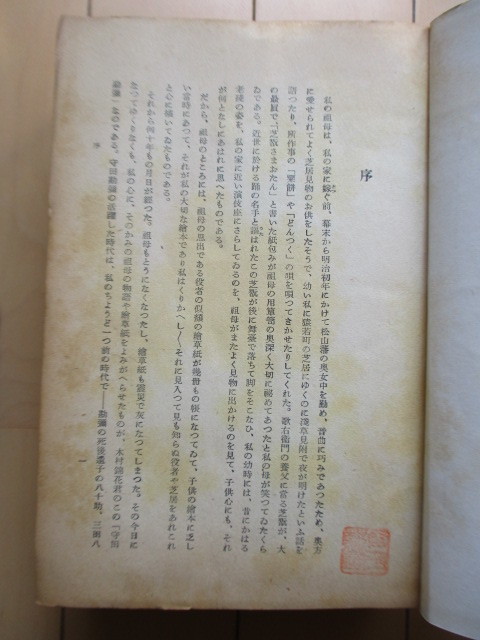 序
私の祖母は、私の家に嫁ぐ前、幕末から明治初年にかけて松山藩の奥女中を勤め、音曲に巧みであつたため、奥方
に愛せられてよく芝居見物のお供をしたそうで、幼い私に猿若町の芝居にゆくのに淺草見附で夜が明けたといふ話を
語つたり、所作事の「栗餅」や「どんつく」の唄を唄つてきかせたりしてくれた。歌右衛門の養父に當る芝翫が、大
の最屓で「芝翫さまおたん」と書いた紙包みが祖母の用簞笥の奥深く大切に祕めてあつたと私の母が笑つてゐたくら
ゐである。近世に於ける踊の名手と謳はれたこの芝翫が後に舞臺で落ちて脚をそこなひ、私の幼時には、昔にかはる
老殘の姿を、私の家に近い演伎座にさらしてゐるのを、祖母がまたよく見物に出かけるのを見て、子供心にも、それ
が何となしにあはれに思へたものである。
だから、祖母のところには、祖母の思出である役者の似顔の繪草紙が幾册もの帳になつてゐて、子供の繪本に乏し
い當時にあつて、それが私の大切な繪本であり私はくりかへし〳〵それに見入つて見も知らぬ役者や芝居をあれこれ
と心に描いてゐたものである。
それから四十年もの月日が經つた。祖母もとうになくなつたし、繪草紙も震災で灰になつてしまつた。その今日に
なつてゆくりなくも、私の心に、そのかみの祖母の物語や繪草紙をよみがへらせたものが、木村錦花君のこの「守田
勘彌」なのである。守田勘彌の活躍した時代は、私のちようど一つ前の時代で――勘彌の死後遺子の八十助、三田八
序
一